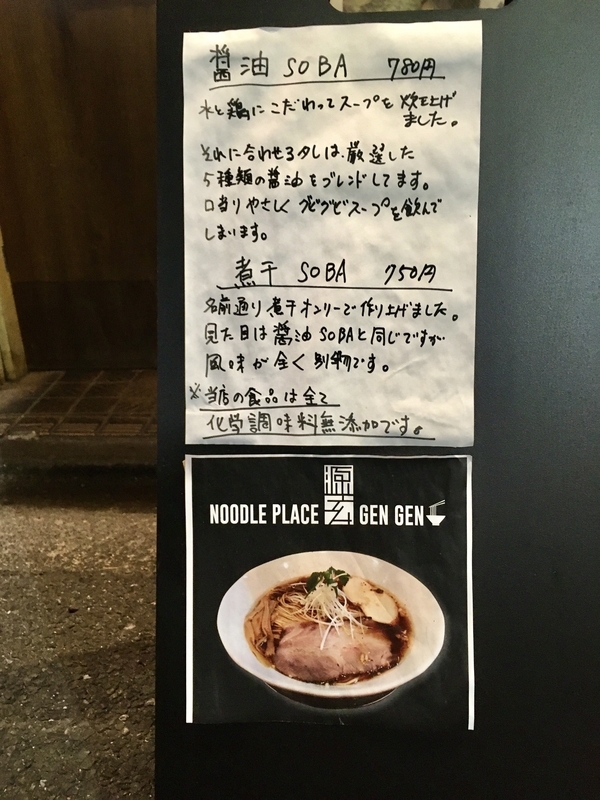 醤油 SOBA 780円
水と鶏にこだわってスープを炊上げ
ました。
それに合わせるタレは、厳選した
5種類の醤油をブレンドしてます。
口当りやさしくグビグビスープを飲んで
しまいます。
煮干 SOBA 750円
名前通り煮干オンリーで作り上げました。
見た目は醤油SOBAと同じですが
風味が全く別物です。
※当店の食品は全て
化学調味料無添加です。
NOODLE PLACE 源玄 GEN GEN